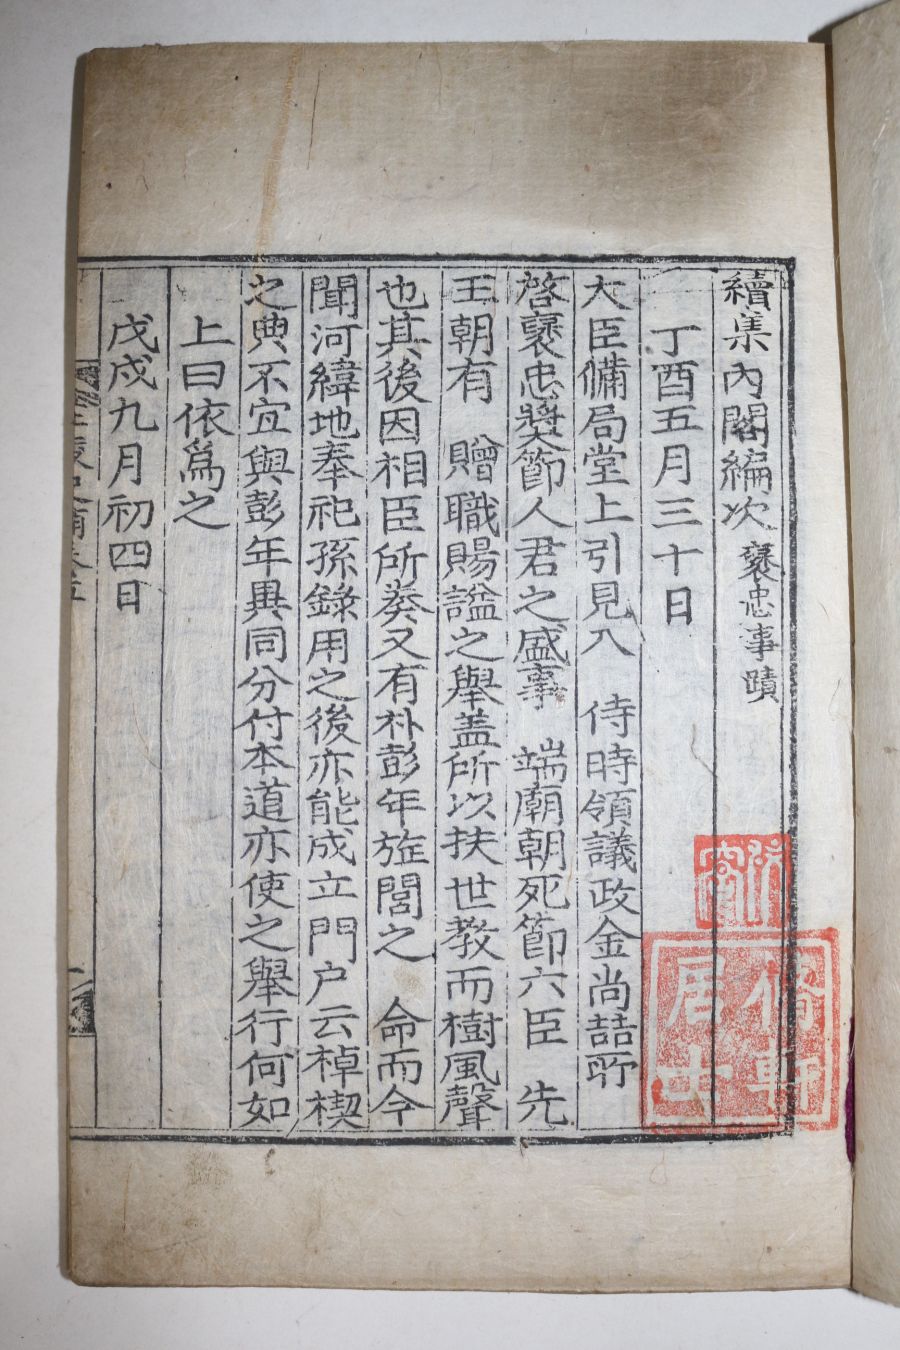 續集內閣編次 褒忠事蹟
丁酉五月三十日
大臣備局堂上引見入 侍時領議政金尚喆所
啓褒忠奬節人君之盛事 端廟朝死節六臣 先
王朝有 贈職賜諡之擧盖所以扶世教而樹風聲
也其後因相臣所奏又有朴彭年旌閭之 命而今
聞河緯地奉祀孫錄用之後亦能成立門户云棹楔
之典不宜與彭年異同分付本道亦使之擧行何如
上曰依爲之
戊戌九月初四日
居士